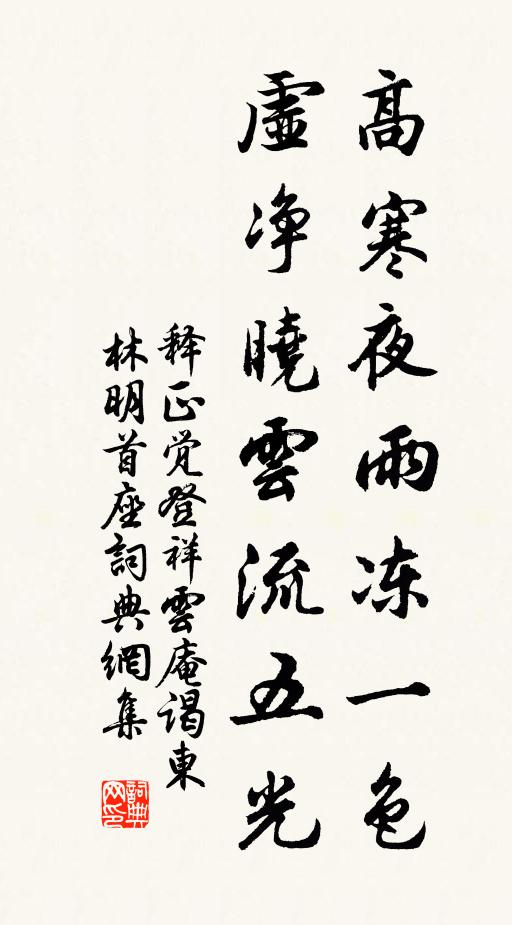 高寒夜雨冻一色
虛净曉雲流五光
释正觉登祥雲庵谒東
林明首座詞典網集
詞典
网印